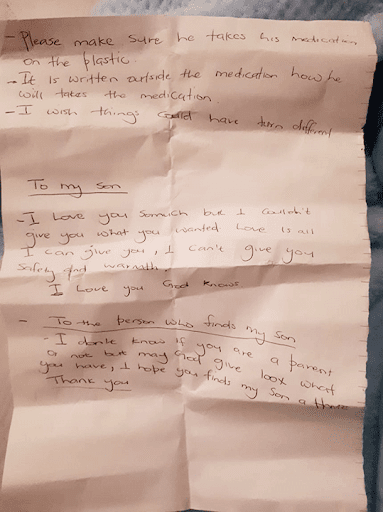 - Please make sure he takes his medication
on the plastic.
- It is written outside the medication how he
will takes the medication.
- I wish things could have turn different
To my son
- I Love you so much but I couldn't
give you what you wanted Love is all
I can give you, I can't give you
safety and warmath.
I Love you God knows
- To the person who finds my son
- I don't know if you are a parent
or not but may God give 100x what
you have, I hope you finds my son a Home
Thank you